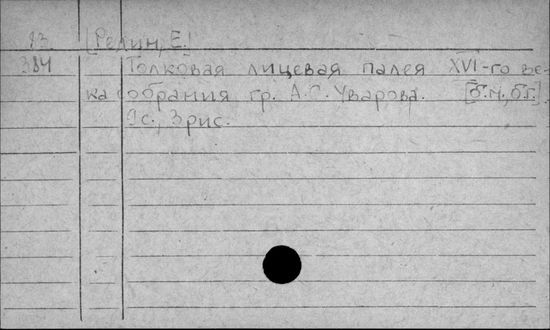 13 [Редин, Е.]
384 Толковая лицевая палея XVI-го ве-
ка собрания гр. А.С. Уварова. [б.м., б.г.]
9с., 3рис.